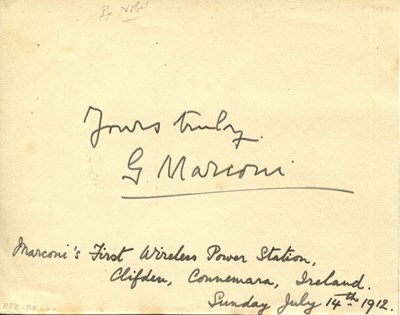 Yours truly.
G Marconi
Marconi's First Wireless Power Station,
Clifden, Connemara, Ireland.
Sunday July 14th 1912.